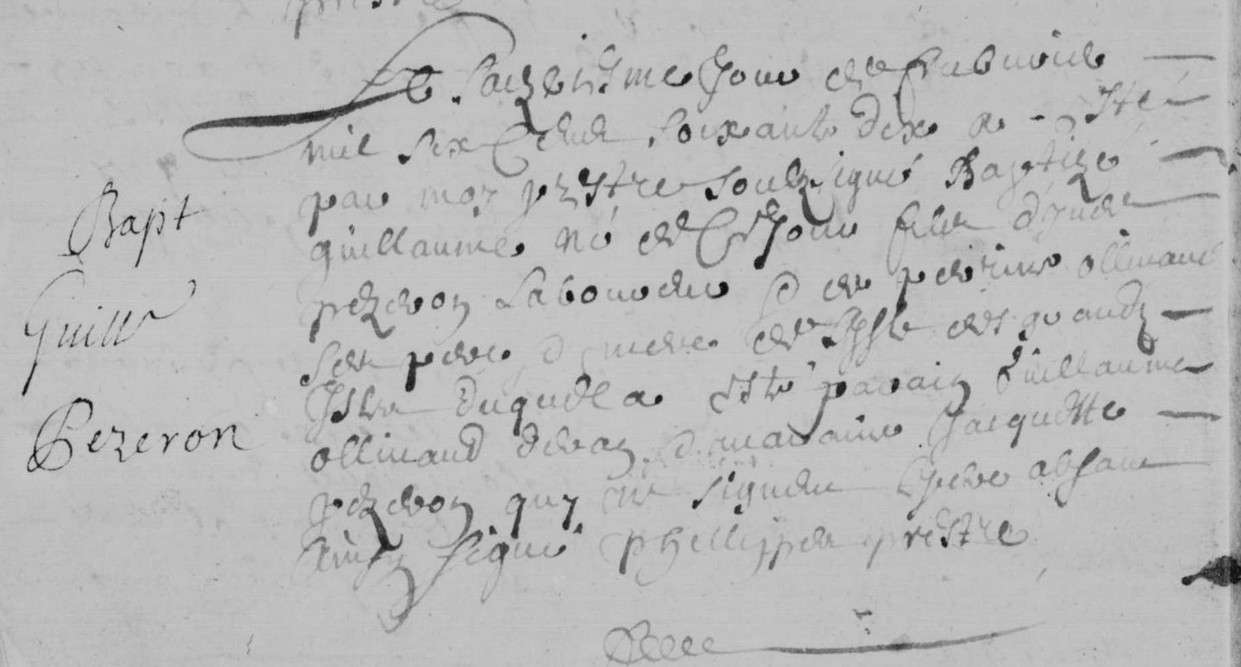 Bapt
Guill
Pezeron
Le saiziesme jour de febvrier
mil six cent soixante dix a esté
par moy prestre soubzsigné Baptizé
guillaume né de ce jour filz d'
pezeron laboureur & de perrine ollivaud
ses pere & mere de des grandz
duquel a esté parain Guillaume
ollivaud & maraine Jacquette
pezeron quy ne signent le pere absant
Ainsy signé phellippes prestre